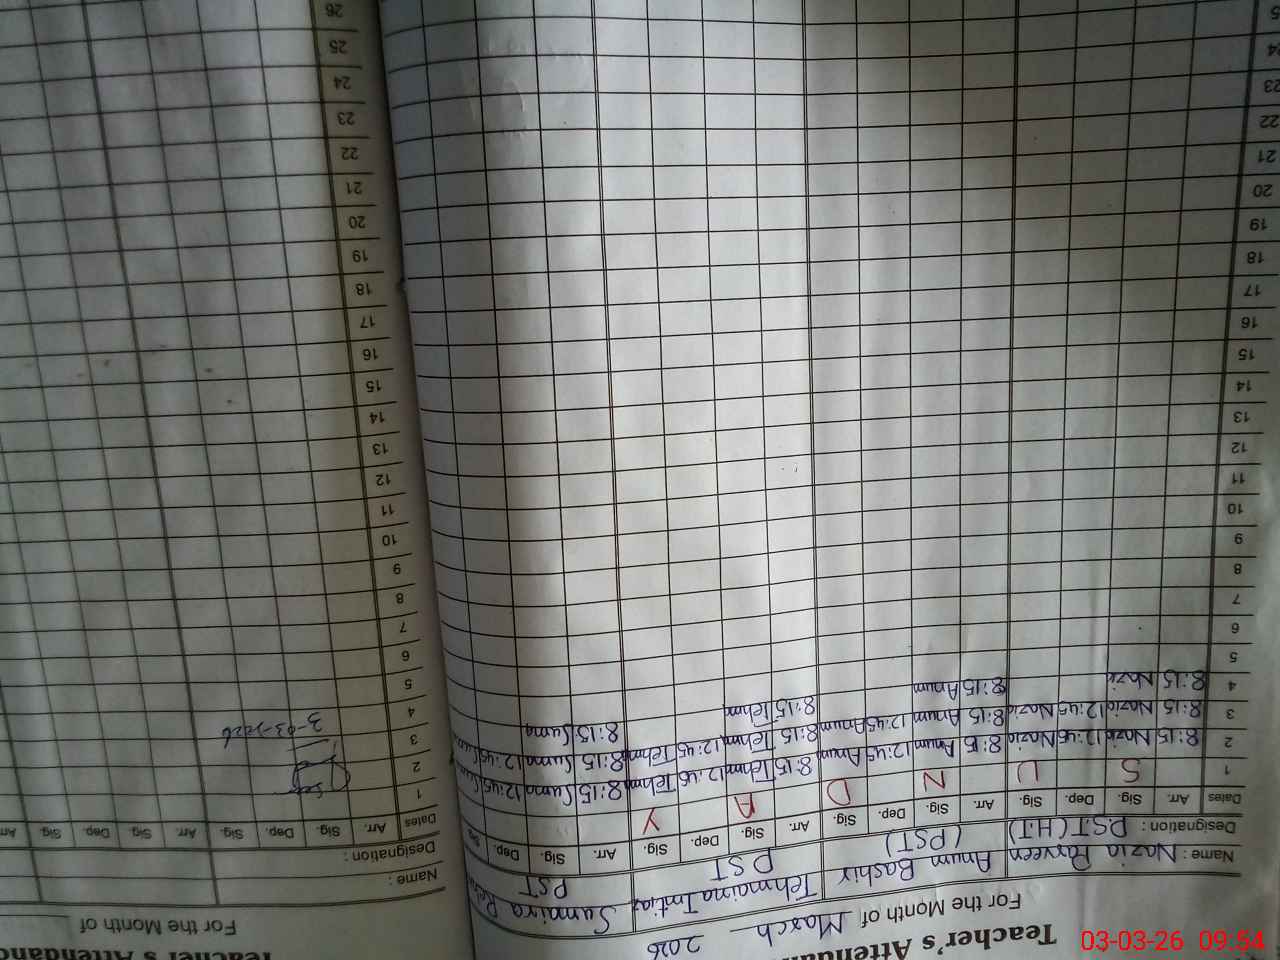 Teacher's Attendan
For the Month of March 2026
Name : Nazia Parveen Anum Bashir Tehmina Imtiaz Sumaira
Designation : PST(HT) (PST) PST PST
Dates Arr. Sig. Dep. Sig. Arr. Sig. Dep. Sig. Arr. Sig. Dep. Sig. Arr. Sig. Dep. Sig.
1 S U N D A Y
2 8:15 Nazia 12:45 Nazia 8:15 Anum 12:45 Anum 8:15 Tehm 12:45 Tehm 8:15 Suma 12:45 Suma
3 8:15 Nazia 12:45 Nazia 8:15 Anum 12:45 Anum 8:15 Tehm 12:45 Tehm 8:15 Suma 12:45 Suma
4 8:15 Nazia 8:15 Anum 8:15 Tehm 8:15 Suma
5
6
7
8
9
10
11
12
13
14
15
16
17
18
19
20
21
22
23
24
5
Teacher's Attendanc
For the Month of
Name :
Designation :
Dates Arr. Sig. Dep. Sig. Arr. Sig. Dep. Sig. Arr
1
2
3
4 3-03-2026
5
6
7
8
9
10
11
12
13
14
15
16
17
18
19
20
21
22
23
24
25
26
03-03-26 09:54